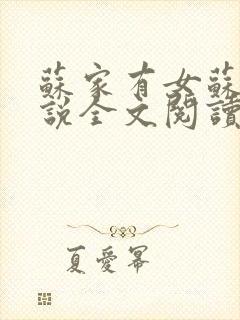 蘇家有女蘇
說全文閱讀
夏愛冪